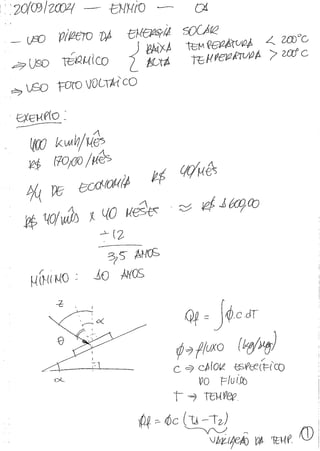 20/09/2004 — ENNIO — CA
— USO DIRETO DA ENERGIA SOLAR
⇒ USO TÉRMICO { BAIXA TEMPERATURA < 200°C
ALTA TEMPERATURA > 200°C
⇒ USO FOTOVOLTAICO
EXEMPLO:
400 kwh/MÊS
R$ 170,00/MÊS
1/4 DE ECONOMIA R$ 40/MÊS
R$ 40/MÊS X 40 MESES ≈ R$ 1600,00
÷12
3,5 ANOS
MÍNIMO: 10 ANOS
Z
α
θ
α
Qf = ∫ϕ.c dT
ϕ → fluxo (kg/seg)
c → CALOR ESPECÍFICO
DO FLUIDO
T → TEMPER.
Qf = ϕc (T1 - T2)
VARIAÇÃO DA TEMP.
1